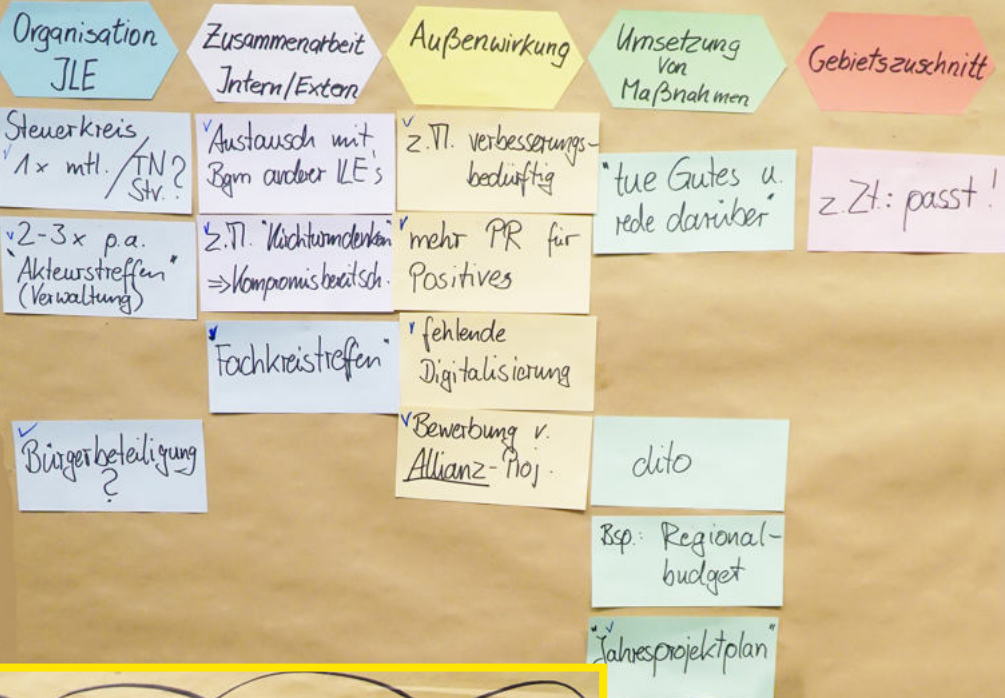 Organisation
JLE
Steuerkreis
1x mtl. / TN?
Stv.?
2-3x p.a.
"Akteurstreffen"
(Verwaltung)
Bürgerbeteiligung
?
Zusammenarbeit
Intern/Extern
Austausch mit
Bgm anderer ILE's
z.T. "Kirchturmdenken"
⇒Kompromisbereitsch.
"Fachkreistreffen"
Außenwirkung
z.T. verbesserungs-
bedürftig
mehr PR für
Positives
fehlende
Digitalisierung
Bewerbung v.
Allianz-Proj.
Umsetzung
von
Maßnahmen
"tue Gutes u.
rede darüber"
dito
Bsp.: Regional-
budget
"Jahresprojektplan"
Gebietszuschnitt
z.Zt.: passt!